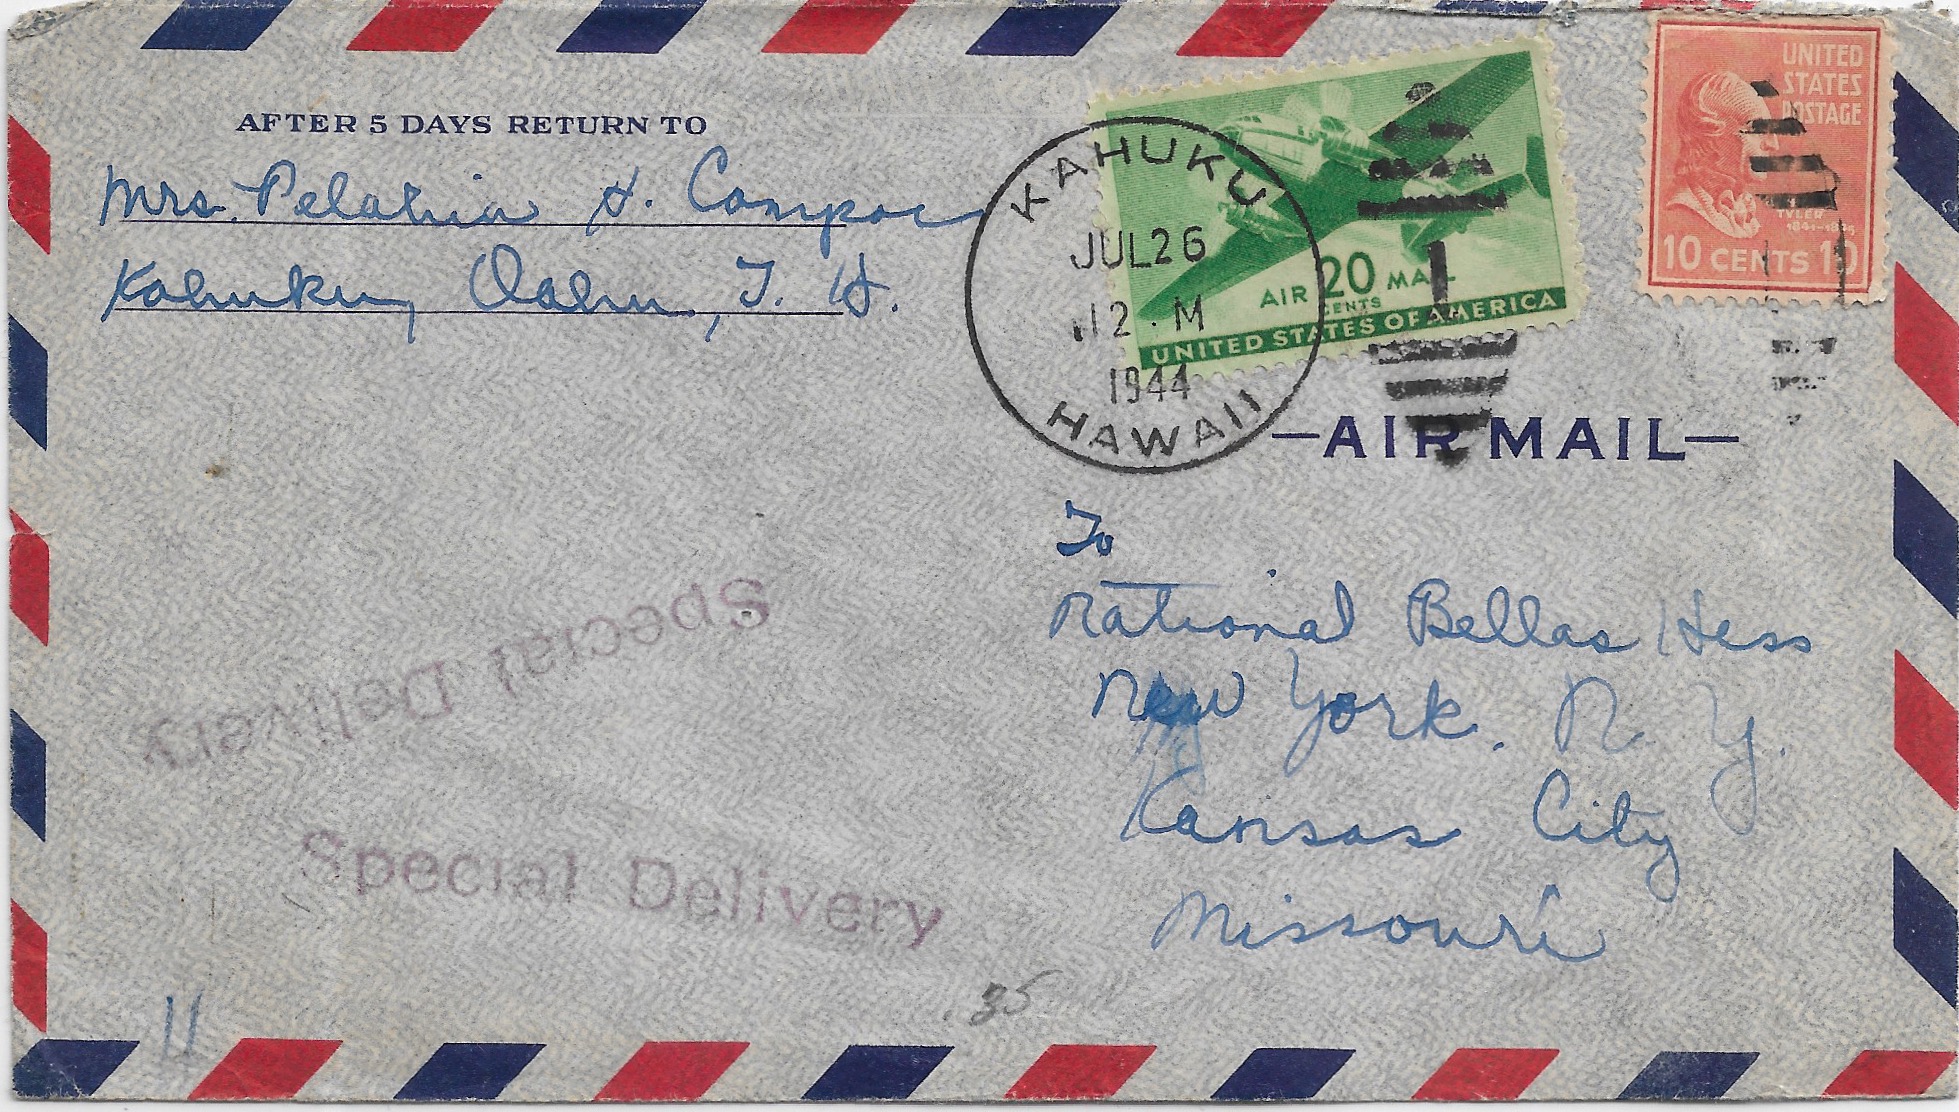 AFTER 5 DAYS RETURN TO
Mrs. Pelatria H. Campos
Kahuku, Oahu, T. H.
KAHUKU
JUL 26
12 · M
1944
HAWAII
AIR 20 MAIL
CENTS
UNITED STATES OF AMERICA
UNITED
STATES
POSTAGE
TYLER
1841-1845
10 CENTS 10
—AIR MAIL—
To
National Bellas Hess
New York. N. Y.
Kansas City
Missouri
Special Delivery
Special Delivery
.35
11